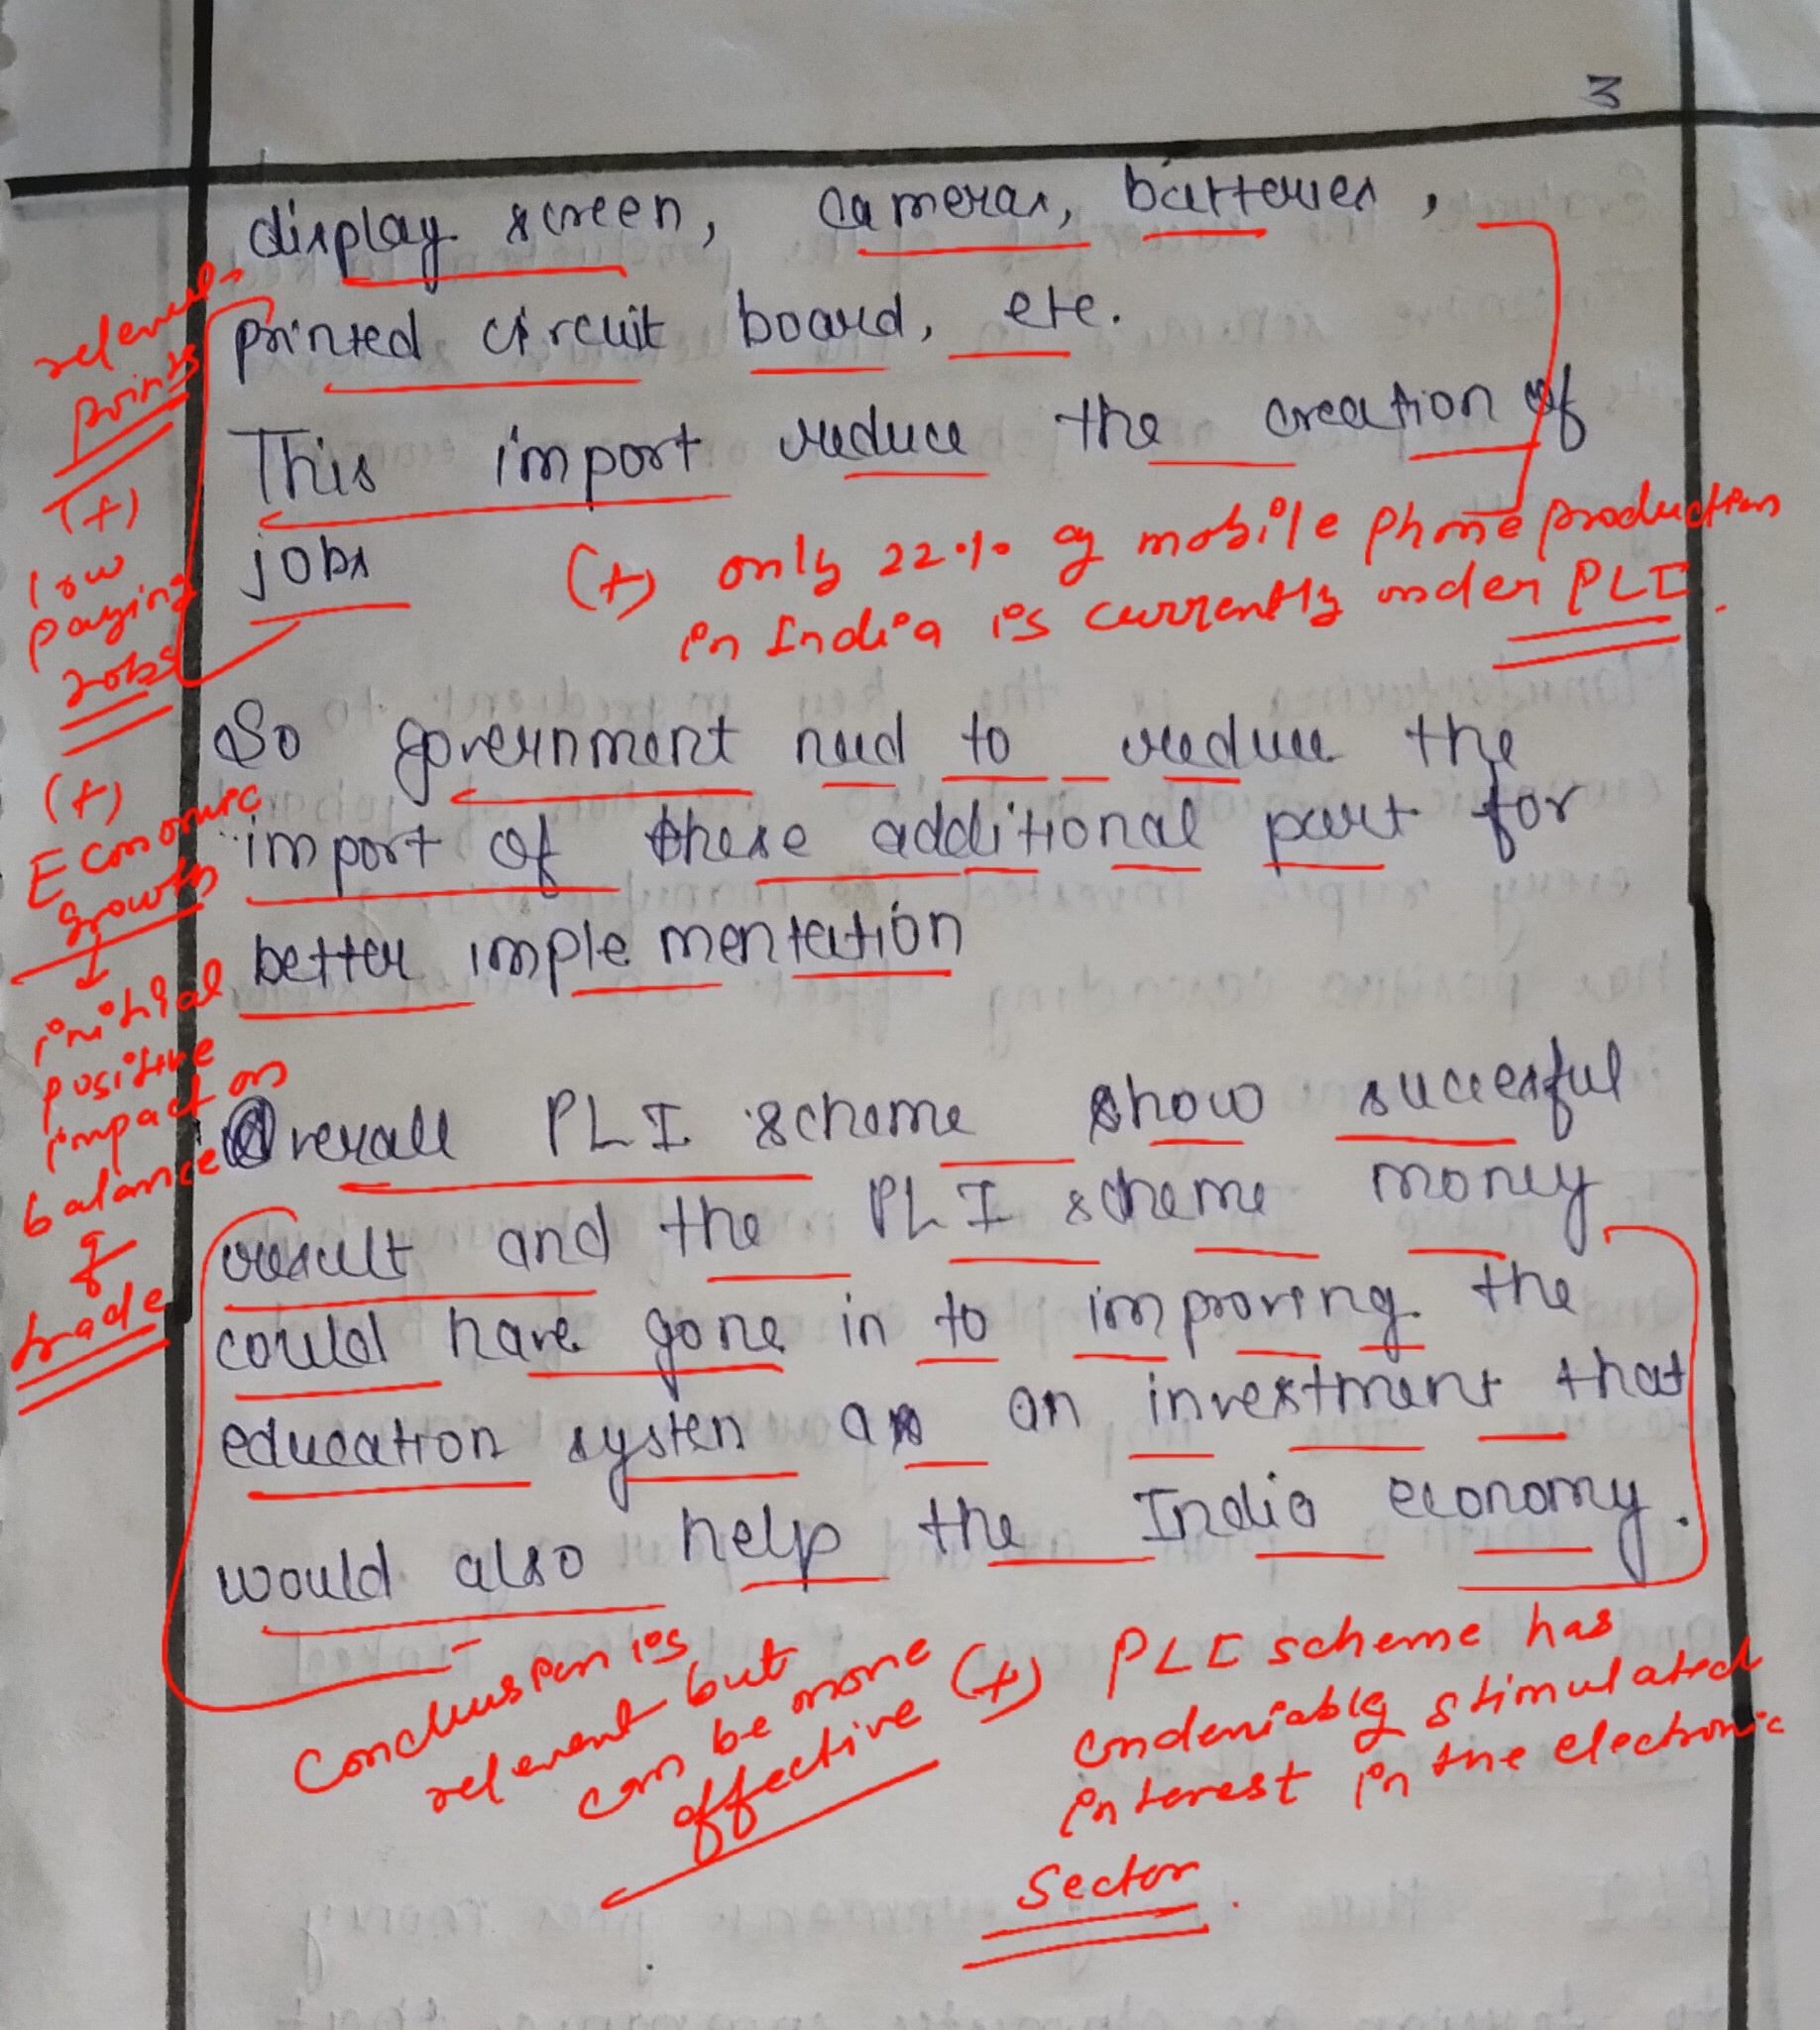 3
display screen, cameras, batteries,
printed circuit board, etc.
This import reduce the creation of
jobs
(+) only 22% of mobile phone production
in India is currently under PLI.
relevant
points
(+)
low
paying
Jobs
So government need to reduce the
import of these additional part for
better implementation
(+)
Economic
growth
↓
initial
positive
impact on
balance
of
trade
Overall PLI scheme show sucessful
result and the PLI scheme money
could have gone in to improving the
education system as an investment that
would also help the India economy.
Conclusion is
relevant but
can be more
effective
(+) PLI scheme has
undeniably stimulated
interest in the electronic
Sector.